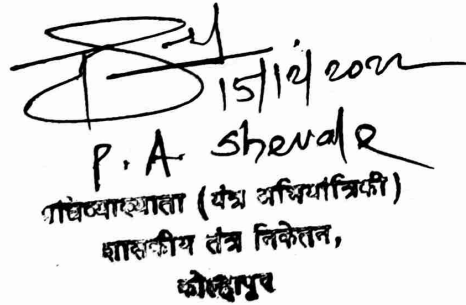 15/12/2022
P. A. Shevale
अधिव्याख्याता (यंत्र अभियांत्रिकी)
शासकीय तंत्र निकेतन,
कोल्हापूर